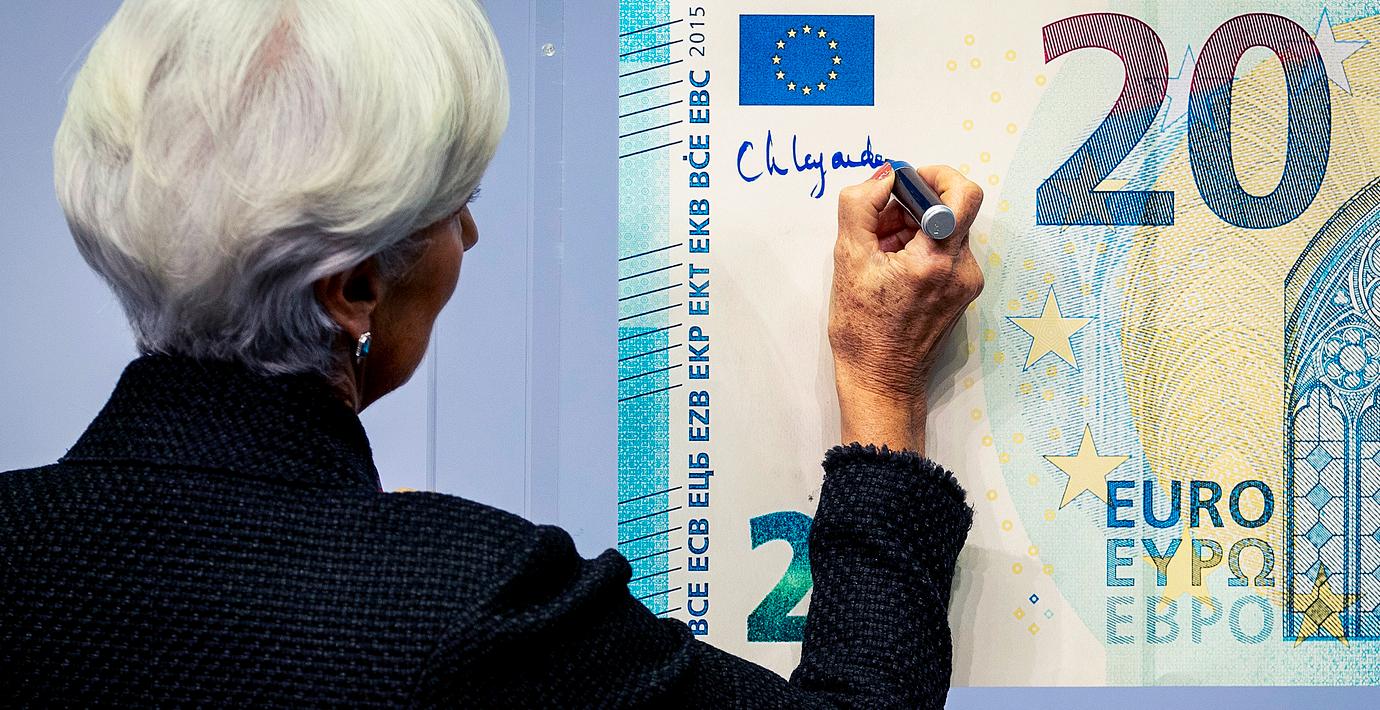 BCE ECB ЕЦБ EZB EKP ΕΚΤ EKB BĊE EBC 2015
Ch Lagarde
20
2
EURO
ΕΥΡΩ
ЕВРО